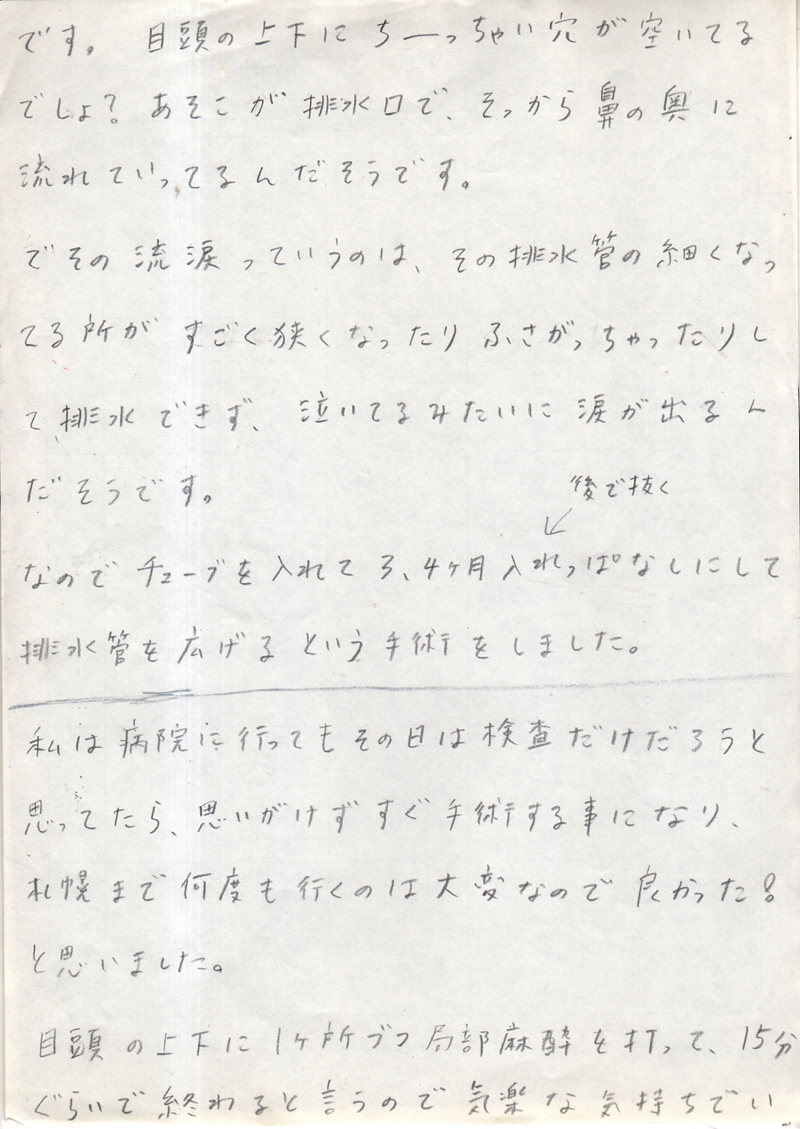 です。 目頭の上下にちーっちゃい穴が空いてる
でしょ?あそこが排水口で、そっから鼻の奥に
流れていってるんだそうです。
でその流涙っていうのは、その排水管の細くなっ
てる所がすごく狭くなったりふさがっちゃったりし
て排水できず、泣いてるみたいに涙が出るん
だそうです。
後で抜く
なのでチューブを入れて3、4ヶ月入れっぱなしにして
排水管を広げるという手術をしました。
私は病院に行ってもその日は検査だけだろうと
思ってたら、思いがけずすぐ手術する事になり、
札幌まで何度も行くのは大変なので良かった!
と思いました。
目頭の上下に1ヶ所づつ局部麻酔を打って、15分
ぐらいで終わると言うので気楽な気持ちでい